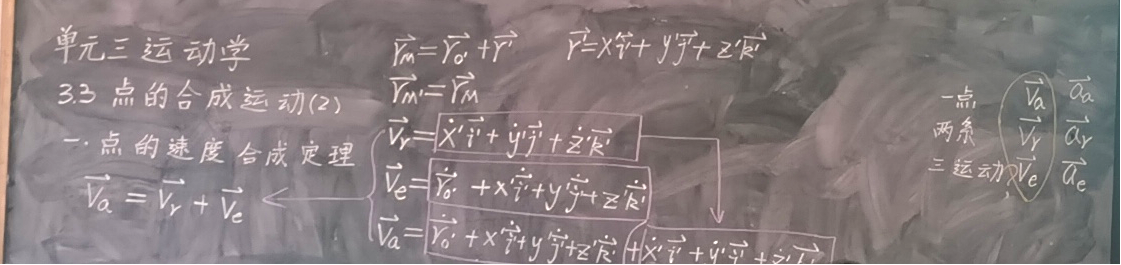 单元三运动学
3.3 点的合成运动(2)
一.点的速度合成定理
\vec{V}_a = \vec{V}_r + \vec{V}_e
\vec{r}_M = \vec{r}_{o'} + \vec{r}'  \vec{r}' = x'\vec{i}' + y'\vec{j}' + z'\vec{k}'
\vec{r}_{M'} = \vec{r}_M
\vec{V}_r = \dot{x}'\vec{i}' + \dot{y}'\vec{j}' + \dot{z}'\vec{k}'
\vec{V}_e = \dot{\vec{r}}_{o'} + x'\dot{\vec{i}}' + y'\dot{\vec{j}}' + z'\dot{\vec{k}}'
\vec{V}_a = \dot{\vec{r}}_{o'} + x'\dot{\vec{i}}' + y'\dot{\vec{j}}' + z'\dot{\vec{k}}' + \dot{x}'\vec{i}' + \dot{y}'\vec{j}' + \dot{z}'\vec{k}'
一点 \vec{V}_a \vec{a}_a
两系 \vec{V}_r \vec{a}_r
三运动 \vec{V}_e \vec{a}_e